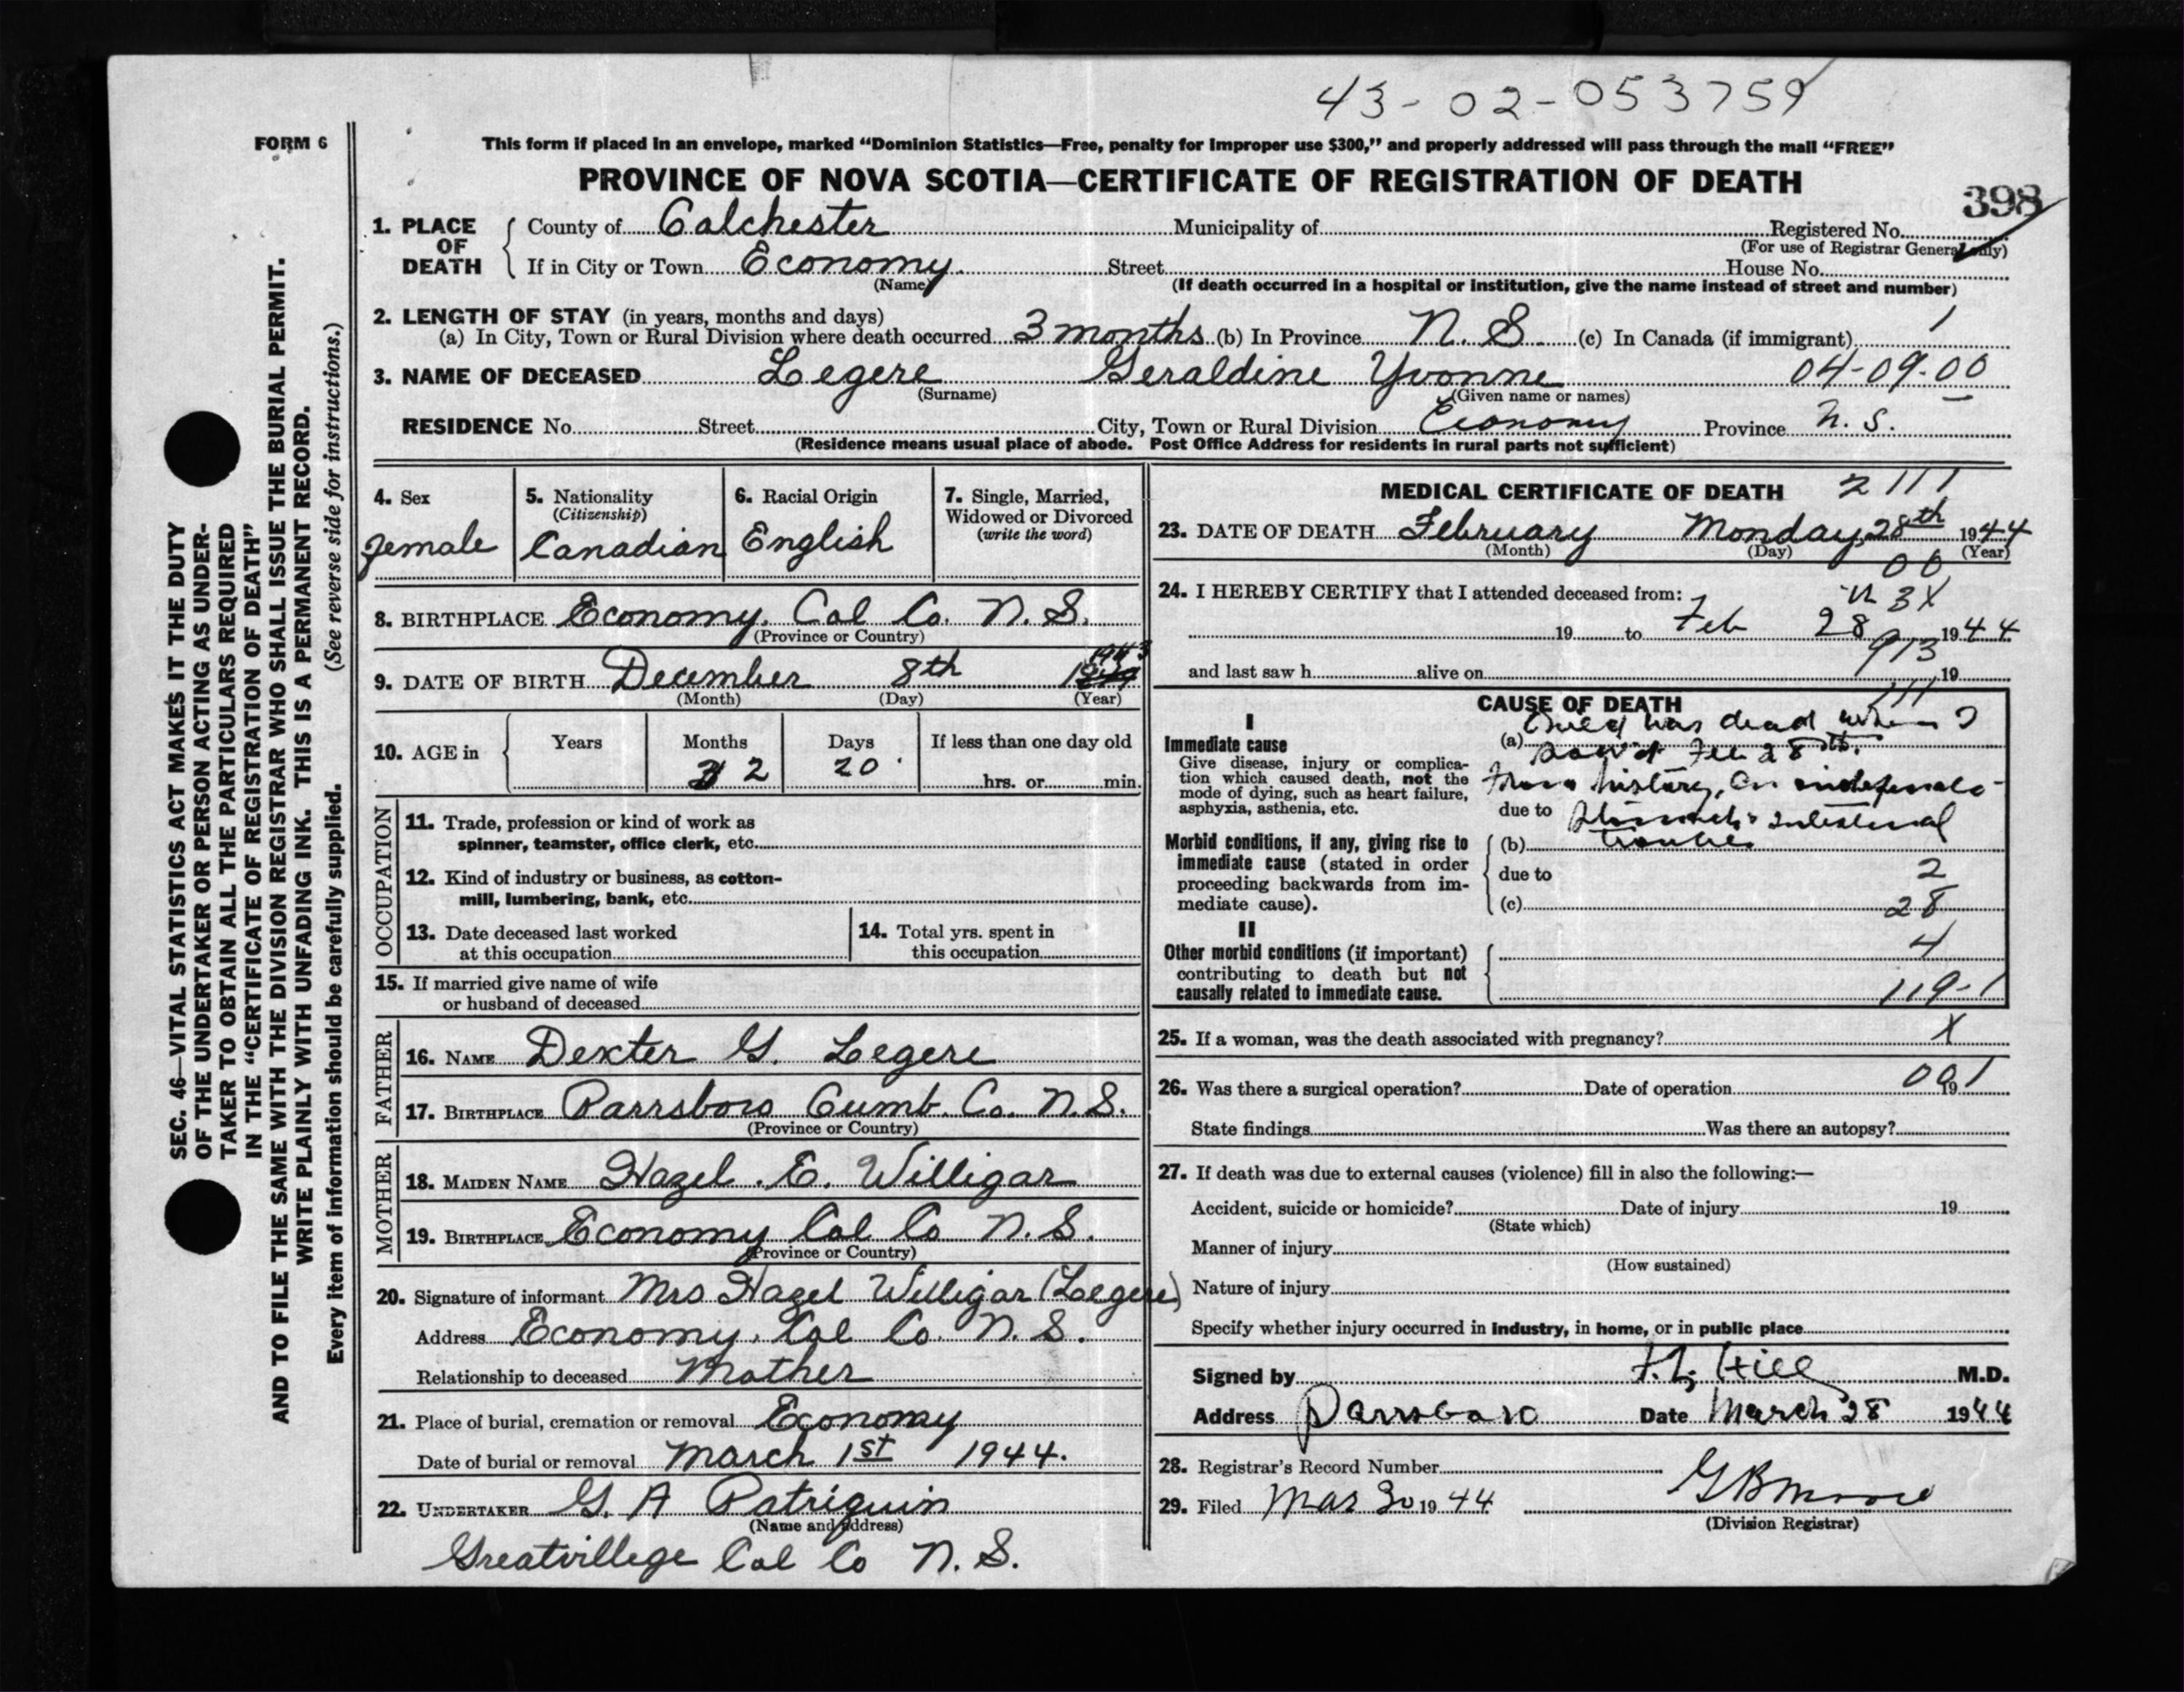 43-02-053759
FORM 6
This form if placed in an envelope, marked “Dominion Statistics—Free, penalty for improper use $300,” and properly addressed will pass through the mail “FREE”
PROVINCE OF NOVA SCOTIA—CERTIFICATE OF REGISTRATION OF DEATH
398
1. PLACE OF DEATH
County of Colchester Municipality of Registered No.
(For use of Registrar General only)
If in City or Town Economy. Street House No.
(Name) (If death occurred in a hospital or institution, give the name instead of street and number)
2. LENGTH OF STAY (in years, months and days)
(a) In City, Town or Rural Division where death occurred 3 months (b) In Province N. S. (c) In Canada (if immigrant) 1
3. NAME OF DECEASED Legere Geraldine Yvonne 04-09-00
(Surname) (Given name or names)
RESIDENCE No. Street City, Town or Rural Division Economy Province N. S.
(Residence means usual place of abode. Post Office Address for residents in rural parts not sufficient)
4. Sex
female
5. Nationality
(Citizenship)
Canadian
6. Racial Origin
English
7. Single, Married,
Widowed or Divorced
(write the word)
8. BIRTHPLACE Economy. Col Co. N. S.
(Province or Country)
1943
9. DATE OF BIRTH December 8th
(Month) (Day) (Year)
10. AGE in
Years Months Days If less than one day old
2 20 hrs. or min.
OCCUPATION
11. Trade, profession or kind of work as
spinner, teamster, office clerk, etc.
12. Kind of industry or business, as cotton-
mill, lumbering, bank, etc.
13. Date deceased last worked
at this occupation
14. Total yrs. spent in
this occupation
15. If married give name of wife
or husband of deceased
FATHER
16. NAME Dexter G. Legere
17. BIRTHPLACE Parrsboro Cumb. Co. N.S.
(Province or Country)
MOTHER
18. MAIDEN NAME Hazel. E. Willigar
19. BIRTHPLACE Economy Col Co N.S.
(Province or Country)
20. Signature of informant Mrs Hazel Willigar (Legere)
Address Economy. Col Co. N. S.
Relationship to deceased Mother
21. Place of burial, cremation or removal Economy
Date of burial or removal March 1st 1944.
22. UNDERTAKER G. A Patriquin
(Name and address)
Greatvillege Col Co N. S.
MEDICAL CERTIFICATE OF DEATH 2111
23. DATE OF DEATH February Monday 28th 1944
(Month) (Day) (Year)
00
24. I HEREBY CERTIFY that I attended deceased from:
3X
19 to Feb 28 1944
913
and last saw h alive on 19
111
CAUSE OF DEATH
I
Immediate cause
Give disease, injury or complica-
tion which caused death, not the
mode of dying, such as heart failure,
asphyxia, asthenia, etc.
(a) Child was dead when I
saw it Feb 28th.
From history, an
due to intestinal
Morbid conditions, if any, giving rise to
immediate cause (stated in order
proceeding backwards from im-
mediate cause).
(b) trouble.
due to 2
(c) 28
II
Other morbid conditions (if important)
contributing to death but not
causally related to immediate cause.
4
119-1
25. If a woman, was the death associated with pregnancy? X
26. Was there a surgical operation? Date of operation 19
001
State findings Was there an autopsy?
27. If death was due to external causes (violence) fill in also the following:—
Accident, suicide or homicide? Date of injury 19
(State which)
Manner of injury
(How sustained)
Nature of injury
Specify whether injury occurred in industry, in home, or in public place
Signed by Hill M.D.
Address Parrsboro Date March 28 1944
28. Registrar's Record Number
29. Filed Mar 30 1944 G B Moore
(Division Registrar)
SEC. 46—VITAL STATISTICS ACT MAKES IT THE DUTY
OF THE UNDERTAKER OR PERSON ACTING AS UNDER-
TAKER TO OBTAIN ALL THE PARTICULARS REQUIRED
IN THE “CERTIFICATE OF REGISTRATION OF DEATH”
AND TO FILE THE SAME WITH THE DIVISION REGISTRAR WHO SHALL ISSUE THE BURIAL PERMIT.
WRITE PLAINLY WITH UNFADING INK. THIS IS A PERMANENT RECORD.
Every item of information should be carefully supplied. (See reverse side for instructions.)